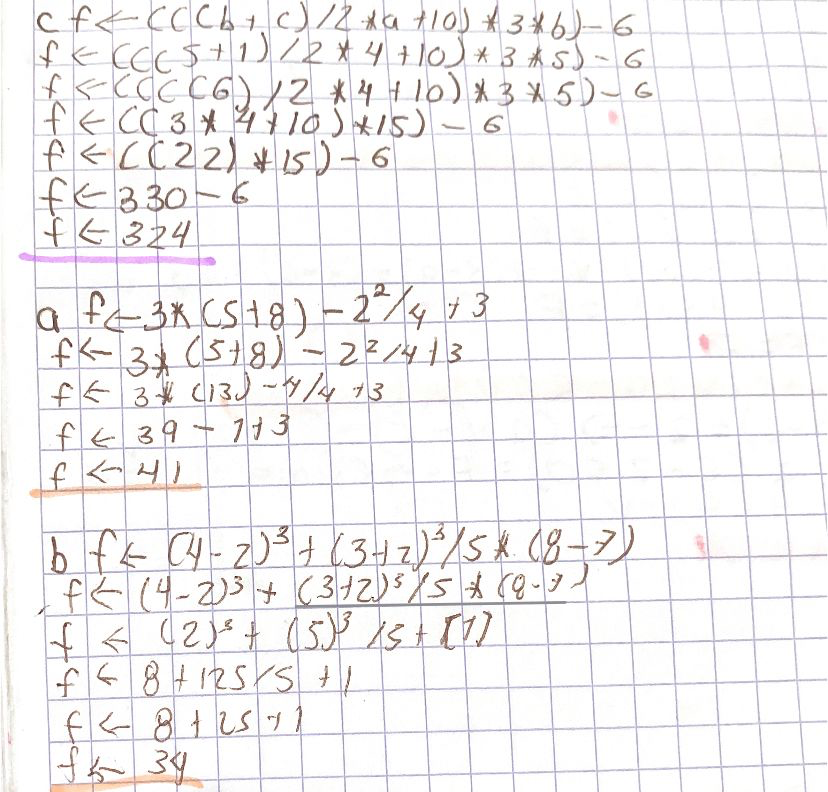 c f ← (((b + c) /2 * a + 10) * 3 * b) - 6
f ← (((5 + 1) /2 * 4 + 10) * 3 * 5) - 6
f ← ((((6) /2 * 4 + 10) * 3 * 5) - 6
f ← ((3 * 4 + 10) * 15) - 6
f ← ((22) * 15) - 6
f ← 330 - 6
f ← 324
a f ← 3 * (5+8) - 2²/4 + 3
f ← 3 * (5+8) - 2²/4+3
f ← 3 * (13) - 4/4 +3
f ← 39 - 1+3
f ← 41
b f ← (4-2)³ + (3+2)³/5 * (8-7)
f ← (4-2)³ + (3+2)³/5 * (8-7)
f ← (2)³ + (5)³ /5 + [1]
f ← 8 + 125/5 + 1
f ← 8 + 25 + 1
f ← 34